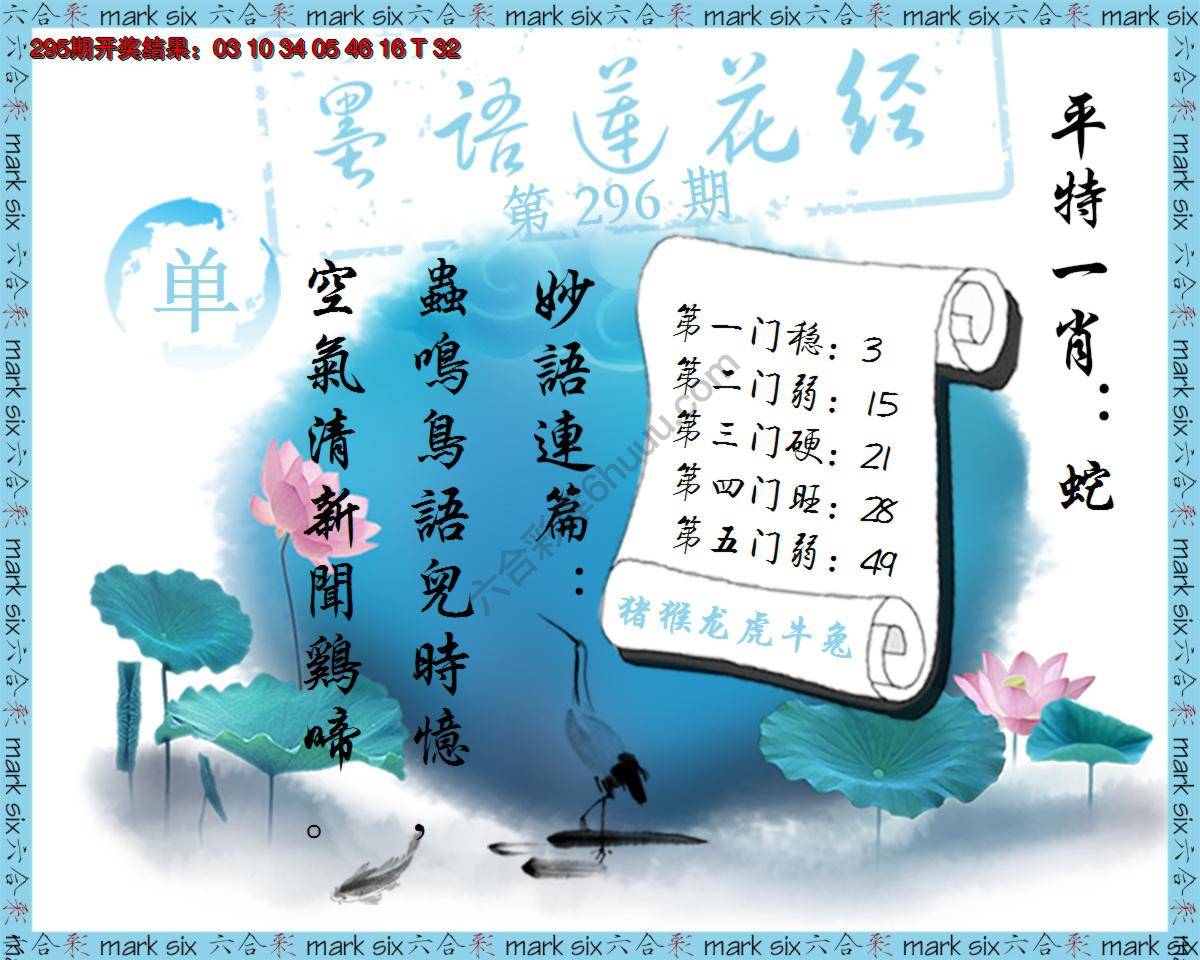 六合彩 mark six 六合彩 mark six 六合彩 mark six 六合彩 mark six 六合彩 mark six 六合彩 mark six
295期开奖结果：03 10 34 05 46 16 T 32
墨語莲花经
第 296 期
平特一肖：蛇
单
妙語連篇：
蟲鳴鳥語兒時憶，
空氣清新聞鷄啼。
第一门稳：3
第二门弱：15
第三门硬：21
第四门旺：28
第五门弱：49
猪猴龙虎牛兔
六合彩 mark six 六合彩 mark six 六合彩 mark six 六合彩 mark six 六合彩 mark six 六合彩 mark six